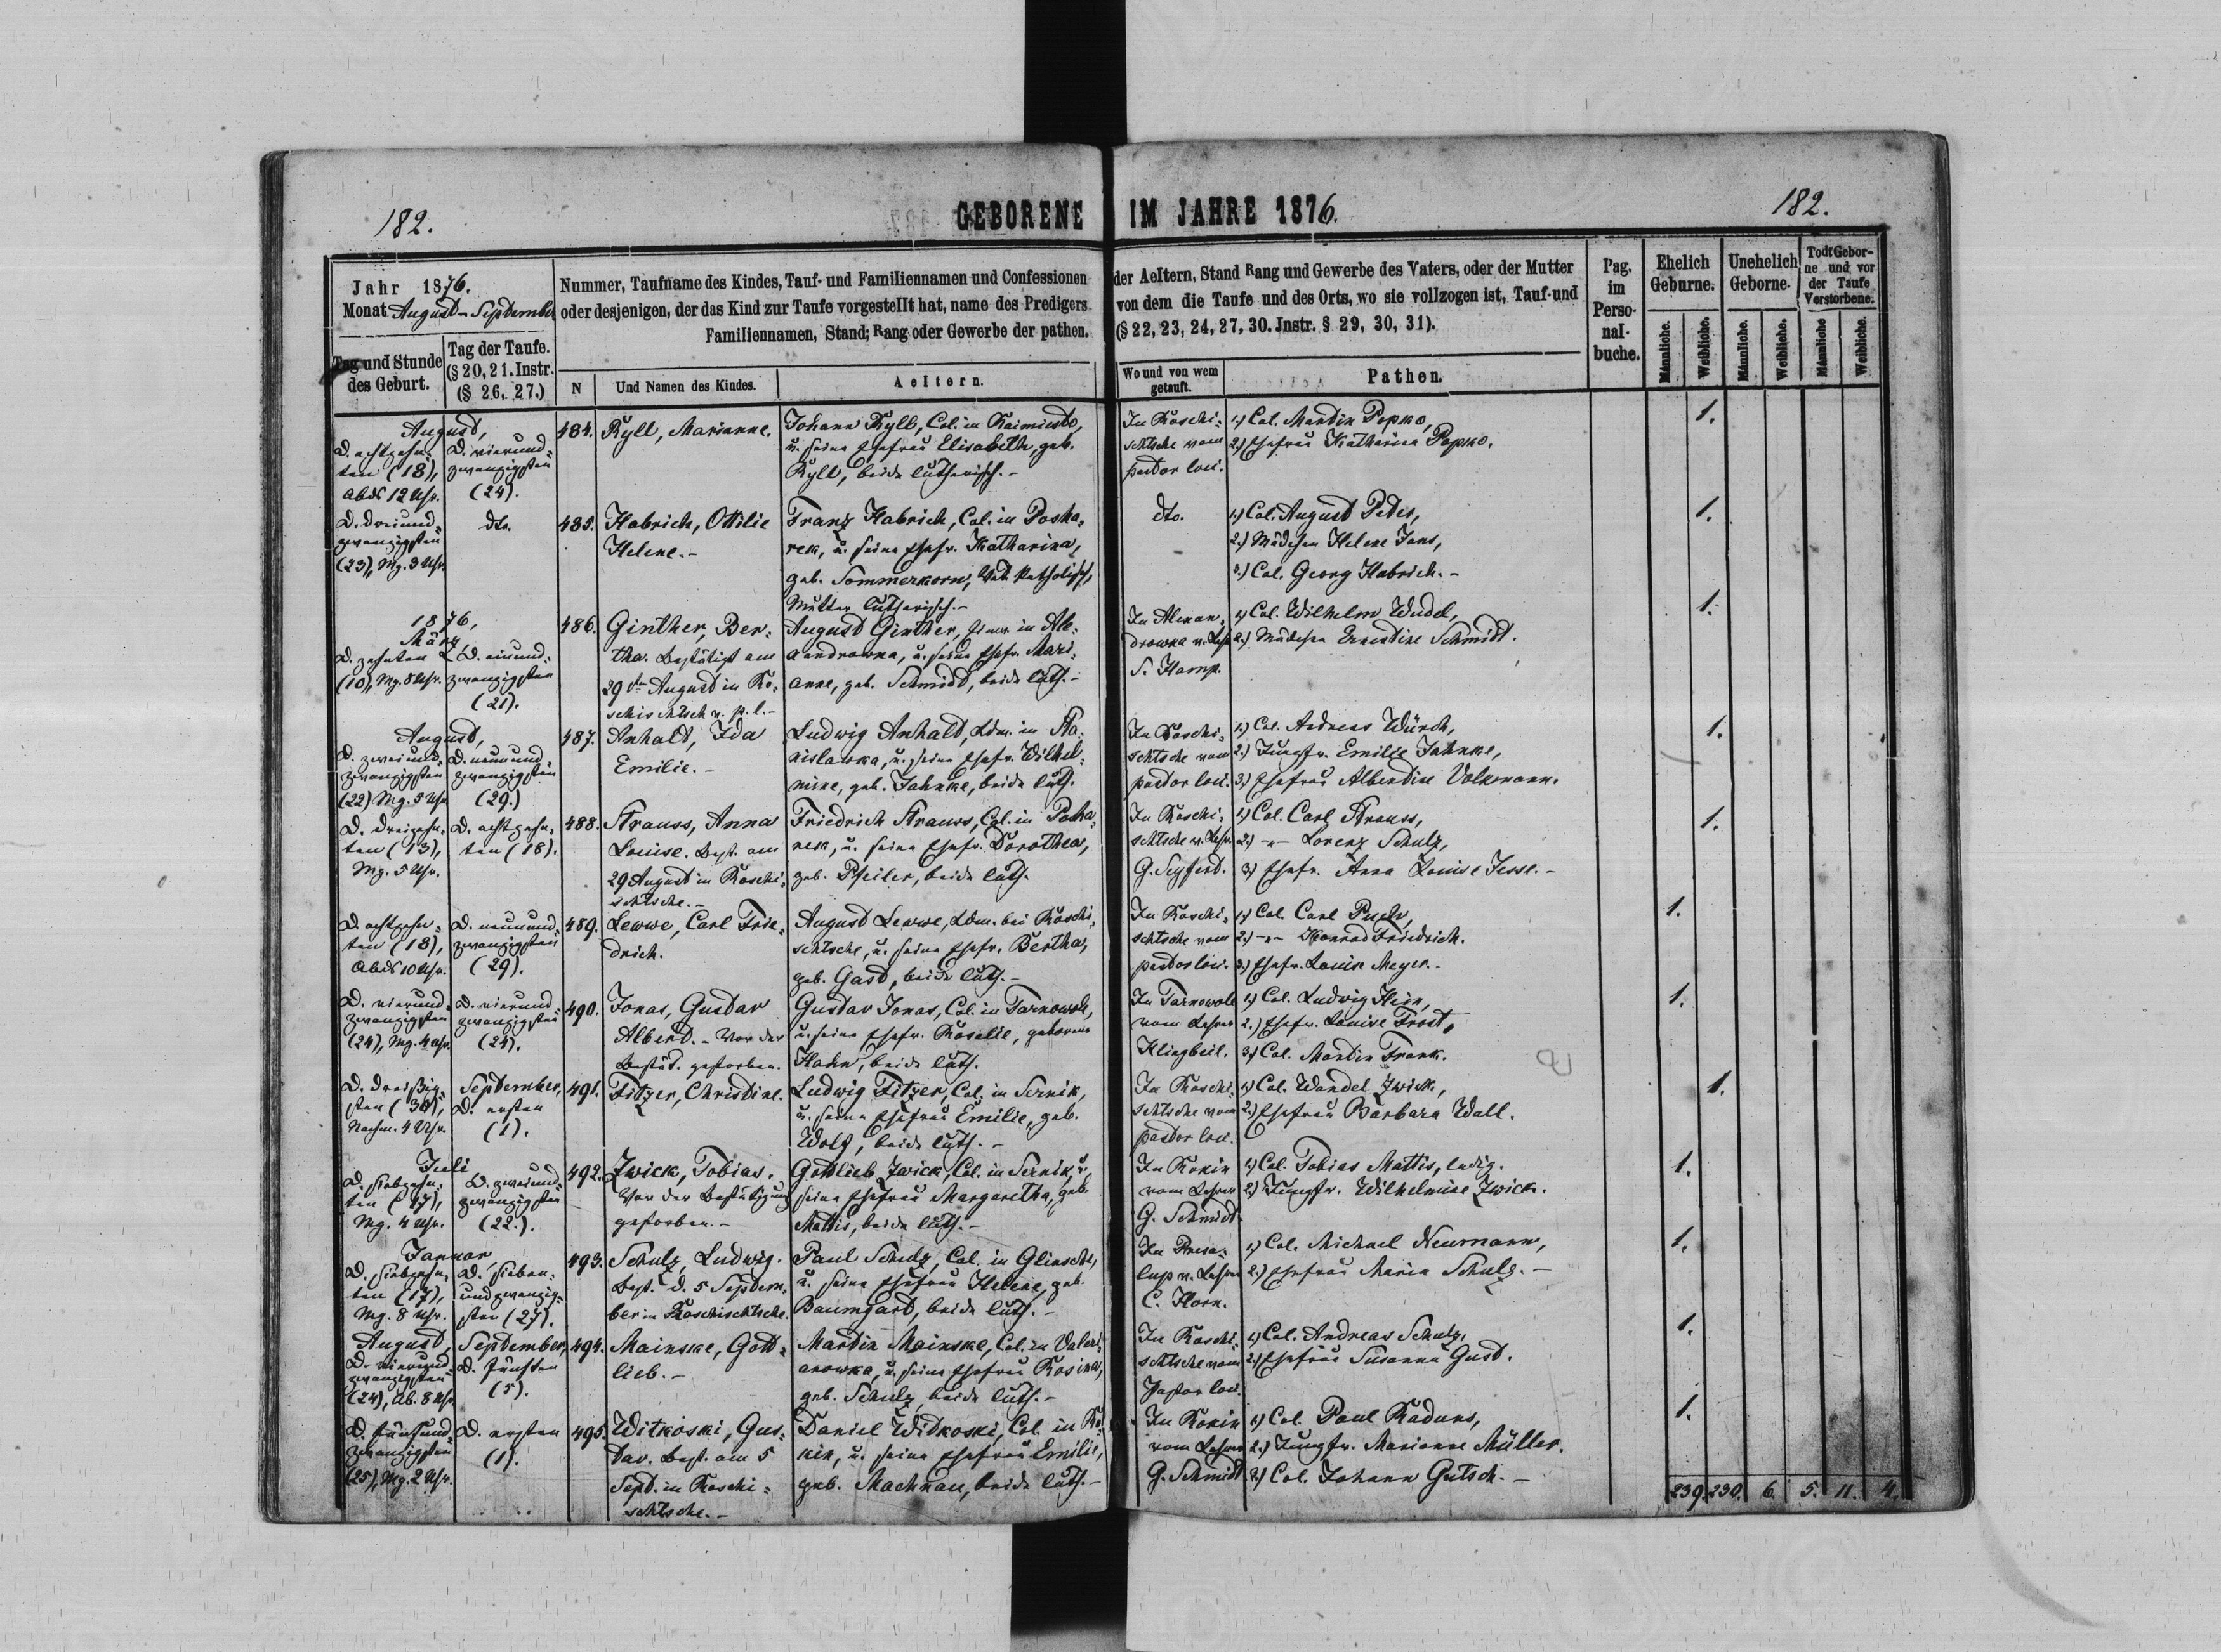 182.
GEBORENE IM JAHRE 1876.
182.
Jahr 1876.
Monat August - September
Tag und Stunde
des Geburt.
Tag der Taufe.
(§ 20, 21. Instr.
(§ 26, 27.)
Nummer, Taufname des Kindes, Tauf- und Familiennamen und Confessionen
oder desjenigen, der das Kind zur Taufe vorgestellt hat, name des Predigers
Familiennamen, Stand; Rang oder Gewerbe der pathen.
N
Und Namen des Kindes.
Aeltern.
der Aeltern, Stand Rang und Gewerbe des Vaters, oder der Mutter
von dem die Taufe und des Orts, wo sie vollzogen ist, Tauf-und
(§ 22, 23, 24, 27, 30. Jnstr. § 29, 30, 31).
Wo und von wem
getauft.
Pathen.
Pag.
im
Perso-
nal-
buche.
Ehelich
Geburne.
Unehelich
Geborne.
Todt Gebor-
ne und vor
der Taufe
Verstorbene.
Männliche.
Weibliche.
Männliche.
Weibliche.
Männliche
Weibliche.
August,
D. achtzehn-
ten (18),
Abds 12 Uhr.
D. vierund-
zwanzigsten
(24).
484.
Ryll, Marianne.
Johann Ryll, Col. in Kaimiesto,
u. seine Ehefrau Elisabeth, geb.
Ryll, beide lutherisch. -
In Roschi-
schtsche vom
pastor loci.
1.) Col. Martin Popko,
2.) Ehefrau Katharina Popko.
1.
D. dreiund-
zwanzigsten
(23), Mg. 3 Uhr.
dto.
485.
Habrich, Ottilie
Helene. -
Franz Habrich, Col. in Poska-
rek, u. seine Ehefr. Katharina,
geb. Sommerkorn, Vat. katholisch,
Mutter lutherisch. -
dto.
1.) Col. August Peter,
2.) Mädchen Helene Jans,
3.) Col. Georg Habrich. -
1.
1876,
März,
D. zehnten
(10), Mg. 8 Uhr.
D. einund-
zwanzigsten
(21).
486.
Ginther, Ber-
tha. Bestätigt am
29ten August in Ro-
schischtsch v. p. l. -
August Ginther, Einw. in Ale-
xandrowka, u. seine Ehefr. Mari-
anne, geb. Schmidt, beide luth. -
In Alexan-
drowka v. Lehr.
S. Hamp.
1.) Col. Wilhelm Wudel,
2.) Mädchen Ernestine Schmidt.
1.
August,
D. zweiund-
zwanzigsten
(22) Mg. 5 Uhr
D. neunund-
zwanzigsten
(29.)
487.
Anhalt, Ida
Emilie. -
Ludwig Anhalt, Ldm. in Sta-
nislawka, u. seine Ehefr. Wilhel-
mine, geb. Jahnke, beide luth.
In Roschi-
schtsche vom
pastor loci.
1.) Col. Andreas Würch,
2.) Jungfr. Emilie Jahnke,
3.) Ehefrau Albertine Volkmann.
1.
D. dreizehn-
ten (13),
Mg. 5 Uhr.
D. achtzehn-
ten (18).
488.
Strauss, Anna
Louise. Best. am
29 August in Roschi-
schtsche. -
Friedrich Strauss, Col. in Poska-
rek, u. seine Ehefr. Dorothea,
geb. Pfeiler, beide luth.
In Roschi-
schtsche v. Lehr.
G. Seyferd.
1.) Col. Carl Strauss,
2.) -„- Lorenz Schulz,
3.) Ehefr. Anna Louise Jesse. -
1.
D. achtzehn-
ten (18),
Abds 10 Uhr.
D. neunund-
zwanzigsten
(29).
489.
Lewwe, Carl Frie-
drich.
August Lewwe, Ldm. bei Roschi-
schtsche, u. seine Ehefr. Bertha,
geb. Gast, beide luth. -
In Roschi-
schtsche vom
pastor loci.
1.) Col. Carl
2.) -„- Konrad Friedrich.
3.) Ehefr. Louise Meyer. -
1.
D. vierund-
zwanzigsten
(24), Mg. 4 Uhr.
D. vierund-
zwanzigsten
(24).
490.
Jonas, Gustav
Albert. - Vor der
Bestät. gestorben.
Gustav Jonas, Col. in Tarnowole,
u. seine Ehefr. Rosalie, geborene
Hahn, beide luth.
In Tarnowole
vom Lehrer
Klingbeil.
1.) Col. Ludwig Hein,
2.) Ehefr. Louise Frost,
3.) Col. Martin Frank.
1.
D. dreißig-
sten (30),
Nachm. 4 Uhr.
September,
D. ersten
(1).
491.
Fitzer, Christine.
Ludwig Fitzer, Col. in Sernik,
u. seine Ehefrau Emilie, geb.
Wolf, beide luth. -
In Roschi-
schtsche vom
pastor loci.
1.) Col. Wandel Zwick,
2.) Ehefrau Barbara Wall.
1.
Juli
D. siebzehn-
ten (17),
Mg. 4 Uhr.
D. zweiund-
zwanzigsten
(22.).
492.
Zwick, Tobias.
Vor der Bestätigung
gestorben. -
Gottlieb Zwick, Col. in Sernik, u.
seine Ehefrau Margaretha, geb.
Mattis, beide luth. -
In Kokin
vom Lehrer
G. Schmidt.
1.) Col. Tobias Mattis, ledig.
2.) Jungfr. Wilhelmine Zwick.
1.
Januar,
D. siebzehn-
ten (17),
Mg. 8 Uhr.
D. sieben-
undzwanzig-
sten (27).
493.
Schulz, Ludwig.
Best. d. 5 Septem-
ber in Roschischtsche.
Paul Schulz, Col. in Glinsche,
u. seine Ehefrau Helene, geb.
Baumgard, beide luth. -
In Presa-
lup v. Lehrer
C. Horn.
1.) Col. Michael Neumann,
2.) Ehefrau Maria Schulz. -
1.
August,
D. vierund-
zwanzigsten
(24), Ab. 8 Uhr
September,
D. fünften
(5).
494.
Mainske, Gott-
lieb. -
Martin Mainske, Col. zu Valeri-
anowka, u. seine Ehefrau Rosina,
geb. Schulz, beide luth. -
In Roschi-
schtsche vom
Pastor loci.
1.) Col. Andreas Schulz,
2.) Ehefrau Susanna Gust.
1.
D. fünfund-
zwanzigsten
(25), Mg. 2 Uhr.
D. ersten
(1).
495.
Witkoski, Gus-
tav. Best. am 5
Sept. in Roschi-
schtsche. -
Daniel Witkoski, Col. in Ko-
kin, u. seine Ehefrau Emilie,
geb. Machnau, beide luth. -
In Kokin
vom Lehrer
G. Schmidt
1.) Col. Paul Raduns,
2.) Jungfr. Marianne Müller.
3.) Col. Johann Gutsch. -
1.
239. 230. 6. 5. 11. 4.